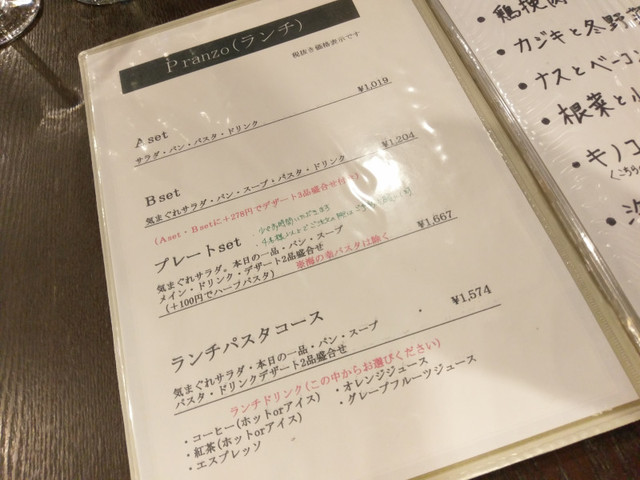 Pranzo(ランチ)
税抜き価格表示です
A set ¥1,019
サラダ・パン・パスタ・ドリンク
B set ¥1,204
気まぐれサラダ・パン・スープ・パスタ・ドリンク
(Aset・Bsetに+278円でデザート3品盛合せ付き)
プレートset ¥1,667
気まぐれサラダ。本日の一品・パン・スープ
メイン・ドリンク・デザート2品盛合せ
(+100円でハーフパスタ) 幸海の幸パスタは除く
ランチパスタコース ¥1,574
気まぐれサラダ・本日の一品・パン・スープ
パスタ・ドリンクデザート2品盛合せ
ランチドリンク(この中からお選びください)
・コーヒー(ホットorアイス) ・オレンジジュース
・紅茶(ホットorアイス) ・グレープフルーツジュース
・エスプレッソ
・鶏挽肉
・カジキと冬野菜
・ナスとベーコン
・根菜と
・キノコ
(こちら